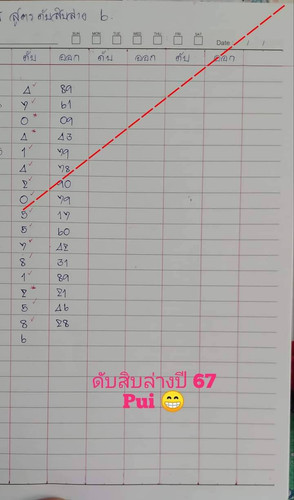 สูตร ดับสิบล่าง 6
SUN MON TUE WED THU FRI SAT
Date / /
ดับ ออก ดับ ออก ดับ ออก
4 89
7 61
0 09
4 43
1 79
4 78
2 90
0 79
5 17
5 60
7 42
8 31
1 89
2 21
5 46
8 28
6
ดับสิบล่างปี 67
Pui 😁